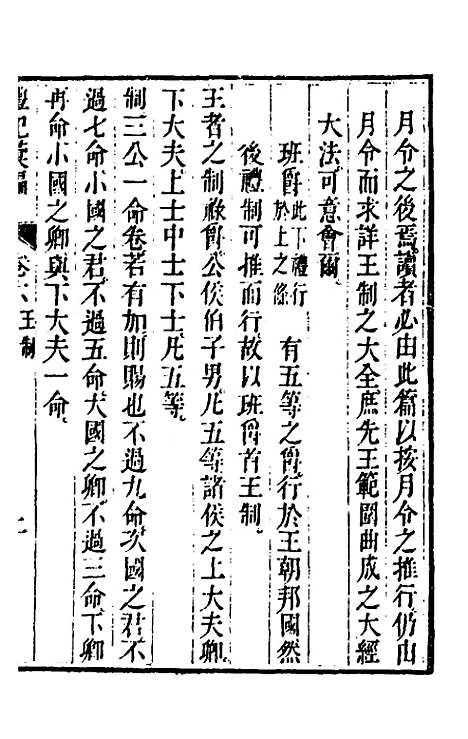 月令之後焉讀者必由此篇以按月令之推行仍由
月令而求詳王制之大全庶先王範圍曲成之大經
大法可意會爾
班爵此下禮行於上之條 有五等之爵行於王朝邦國然
後禮制可推而行故以班爵首王制
王者之制祿爵公侯伯子男凡五等諸侯之上大夫卿
下大夫上士中士下士凡五等
制三公一命卷若有加則賜也不過九命次國之君不
過七命小國之君不過五命大國之卿不過三命下卿
再命小國之卿與下大夫一命
禮記彙編 卷六 王制